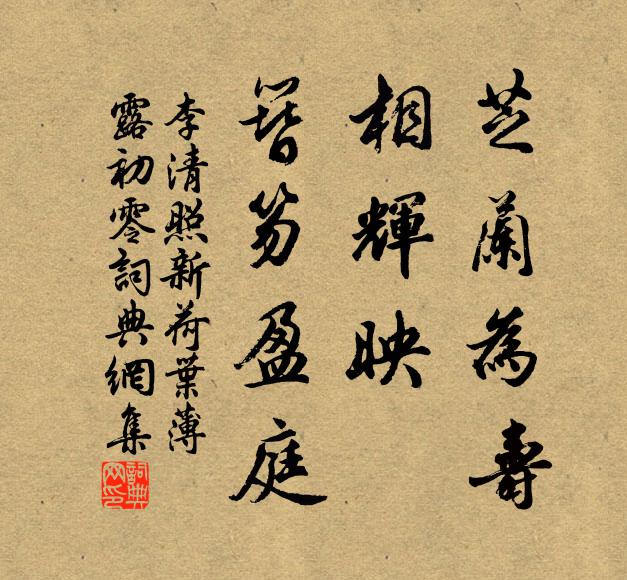 芝蘭為壽
相輝映
簪笏盈庭
李清照新荷葉薄
露初零詞典網集
詞典
网印